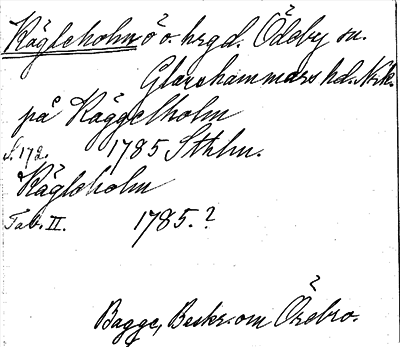 Kägleholm ö o. hrgd. Ödeby sn.
Glanshammars hd. Nrk.
på Käggelholm
s. 172. 1785 Sthlm.
Kägleholm
Tab. II. 1785.?
Bagge, Beskr. om Örebro.